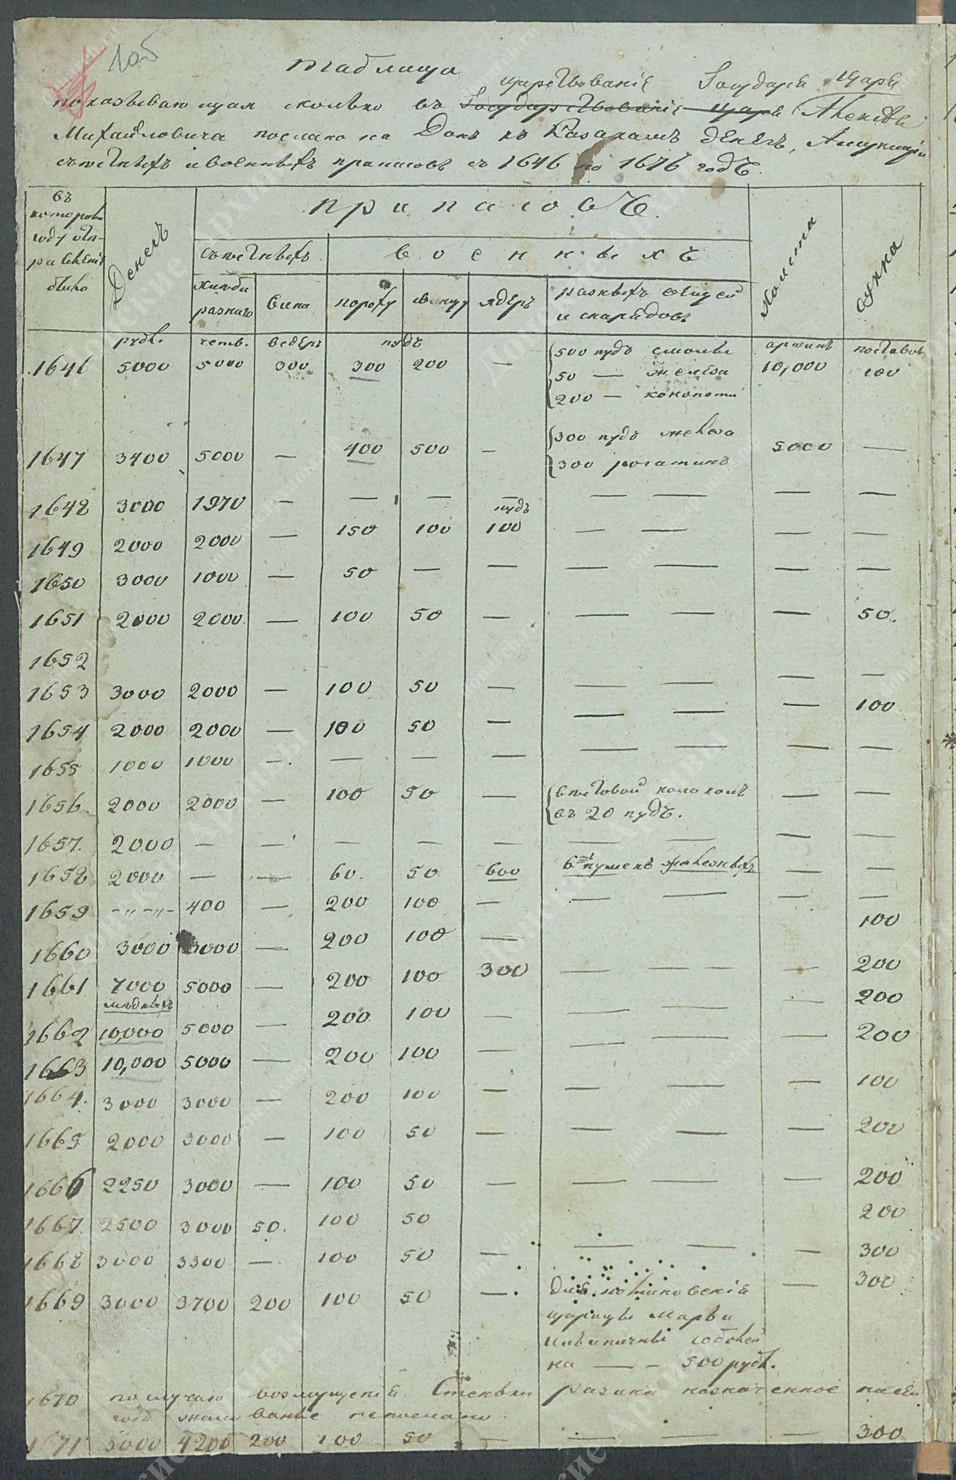 105
Таблица
царствованіе Государя Царя
показывающая сколько въ Государствованіе Царя Алексѣя
Михайловича послано на Донъ къ Казакамъ денегъ, Амуниціи
съѣстныхъ и военныхъ припасовъ съ 1646 по 1676 годъ.
въ которомъ году отправленіе было | Денегъ | припасовъ | Холста | Сукна
съѣстныхъ | военныхъ
хлѣба разнаго | вина | пороху | свинцу | ядеръ | разныхъ вещей и снарядовъ
рубл. | четв. | ведеръ | пудъ | аршинъ | поставовъ
1646 | 5000 | 5000 | 300 | 300 | 200 | — | 500 пудъ смолы | 10,000 | 100
50 — желѣза
200 — конопати
1647 | 3400 | 5000 | — | 400 | 500 | — | 300 пудъ желѣза | 5000 | —
300 рогатинъ
1648 | 3000 | 1970 | — | — | — | — | — — | — | —
пудъ
1649 | 2000 | 2000 | — | 150 | 100 | 100 | — — | — | —
1650 | 3000 | 1000 | — | 50 | — | — | — — | — | —
1651 | 2000 | 2000 | — | 100 | 50 | — | — — | — | 50.
1652
1653 | 3000 | 2000 | — | 100 | 50 | — | — — | — | —
100
1654 | 2000 | 2000 | — | 100 | 50 | — | — — | —
1655 | 1000 | 1000 | — | — | — | — | — — | — | —
1656 | 2000 | 2000 | — | 100 | 50 | — | вѣстовой колоколъ | — | —
въ 20 пудъ.
1657. | 2000 | — | — | — | — | — | — — | — | —
1658 | 2000 | — | — | 60. | 50 | 600 | 6 пушекъ желѣзныхъ | — | —
1659 | -„-„- | 400 | — | 200 | 100 | — | — — | — | —
1660 | 3000 | 3000 | — | 200 | 100 | — | 100
1661 | 7000 | 5000 | — | 200 | 100 | 300 | — — | — | 200
мѣдныхъ
1662 | 10,000 | 5000 | — | 200 | 100 | — | — — | — | 200
1663 | 10,000 | 5000 | — | 200 | 100 | — | — — | — | 200
1664. | 3000 | 3000 | — | 200 | 100 | — | — — | — | 100
1665 | 2000 | 3000 | — | 100 | 50 | — | — — | — | 200
1666 | 2250 | 3000 | — | 100 | 50 | — | — — | — | 200
1667. | 2500 | 3000 | 50. | 100 | 50 | 200
1668 | 3000 | 3300 | — | 100 | 50 | — | — — | — | 300
1669 | 3000 | 3700 | 200 | 100 | 50 | — | для поминовенія | — | 300
царицы Марьи
Ильиничны собокей
на — — 500 рубл.
1670 по случаю возмущенія Стеньки разина назначенное на сей
годъ жалованье непослано
1671 | 5000 | 4200 | 200 | 100 | 50 | — | — — | — | 300